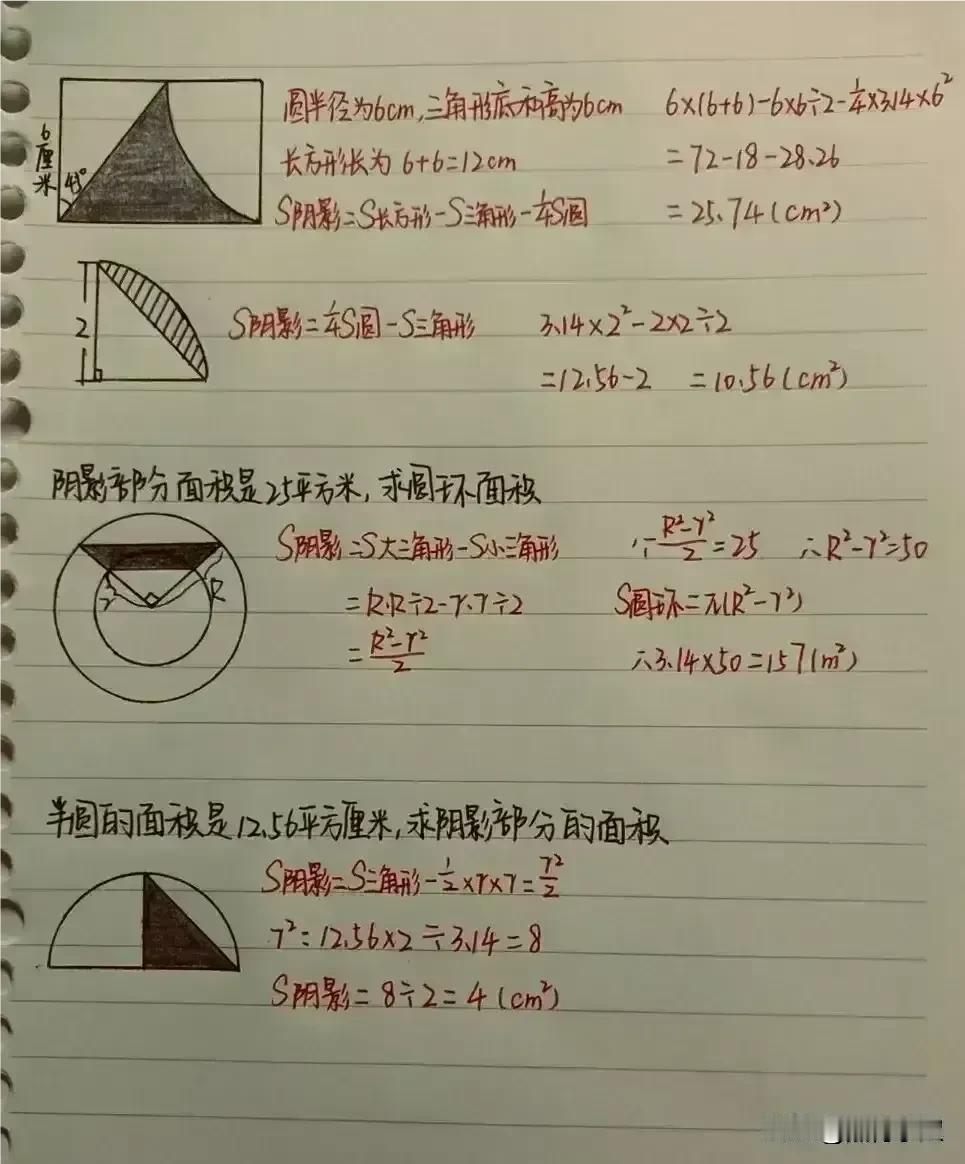 圆半径为6cm,三角形底和高为6cm 6×(6+6)-6×6÷2-¼×3.14×6²
6厘米
45°
长方形长为 6+6=12cm =72-18-28.26
S阴影=S长方形-S三角形-¼S圆 =25.74(cm²)
2
S阴影=¼S圆-S三角形 3.14×2²-2×2÷2
=12.56-2 =10.56(cm²)
阴影部分面积是25平方米,求圆环面积
r
R
S阴影=S大三角形-S小三角形 ∵(R²-r²)/2=25 ∴R²-r²=50
=R.R÷2-r.r÷2 S圆环=π(R²-r²)
=(R²-r²)/2 ∴3.14×50=157(m²)
半圆的面积是12.56平方厘米,求阴影部分的面积
S阴影=S三角形-½×r×r=r²/2
r²=12.56×2÷3.14=8
S阴影=8÷2=4(cm²)